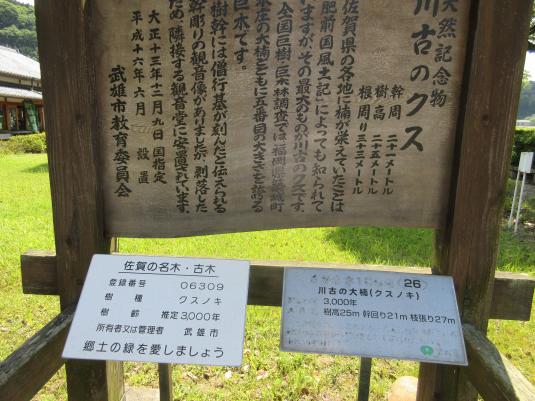 天然記念物
川古のクス
幹周 二十一メートル
樹高 二十五メートル
根周り 三十三メートル
佐賀県の各地に楠が栄えていたことは
肥前国風土記」によっても知られて
ますが、その最大のものが川古のクスです。
全国巨樹・巨木林調査では福岡県
本庄の大楠とともに五番目の大きさを誇る
巨木です。
樹幹には僧行基が刻んだと伝えられる
幹彫りの観音像がありましたが、剥落した
ため、隣接する観音堂に安置されています。
大正十三年十二月九日 国指定
平成十六年六月 設置
武雄市教育委員会
佐賀の名木・古木
登録番号 06309
樹種 クスノキ
樹齢 推定3,000年
所有者又は管理者 武雄市
郷土の緑を愛しましょう
26
川古の大楠(クスノキ)
3,000年
樹高25m 幹回り21m 枝張り27m